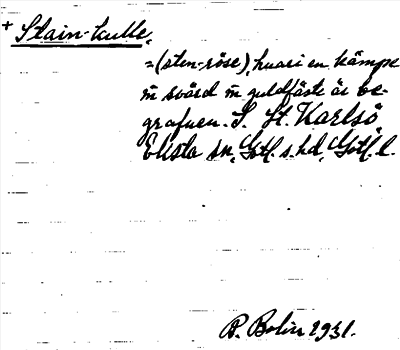 + Stain-kulle,
=(sten-röse), huari en kämpe
m̄ svärd m̄ guldfäste är be-
grafuen. I. St. Karlsö
Eksta sn, Gotl. s. hd, Gotl. l.
P. Bolin 1931.